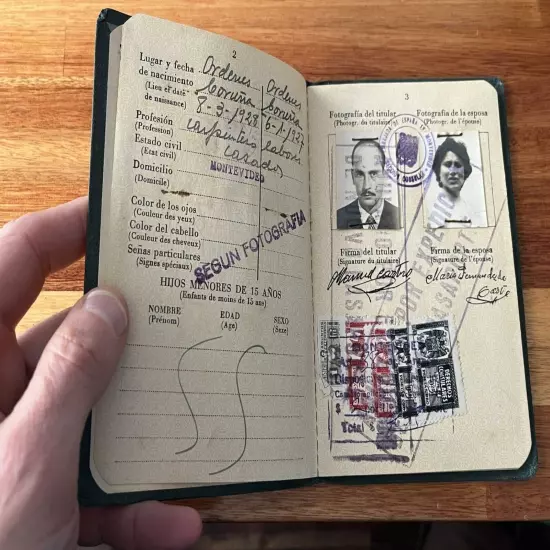 2
Lugar y fecha Ordenes Ordenes
de nacimiento Coruña Coruña
(Lieu et date 8-3-1928 6-1-1927
de naissance)
Profesión carpintero labores
(Profession)
Estado civil casados
(Etat civil)
Domicilio MONTEVIDEO
(Domicile)
Color de los ojos
(Couleur des yeux)
Color del cabello
(Couleur des cheveux)
Señas particulares
(Signes spéciaux)
SEGUN FOTOGRAFIA
HIJOS MENORES DE 15 AÑOS
(Enfants de moins de 15 ans)
NOMBRE EDAD SEXO
(Prénom) (Age) (Sexe)
3
Fotografía del titular Fotografía de la esposa
(Photogr. du titulaire) (Photogr. de l'épouse)
DE ESPAÑA EN MONTEVIDEO
Firma del titular Firma de la esposa
(Signature du titulaire) (Signature de l'épouse)
Manuel Castro María
Total $